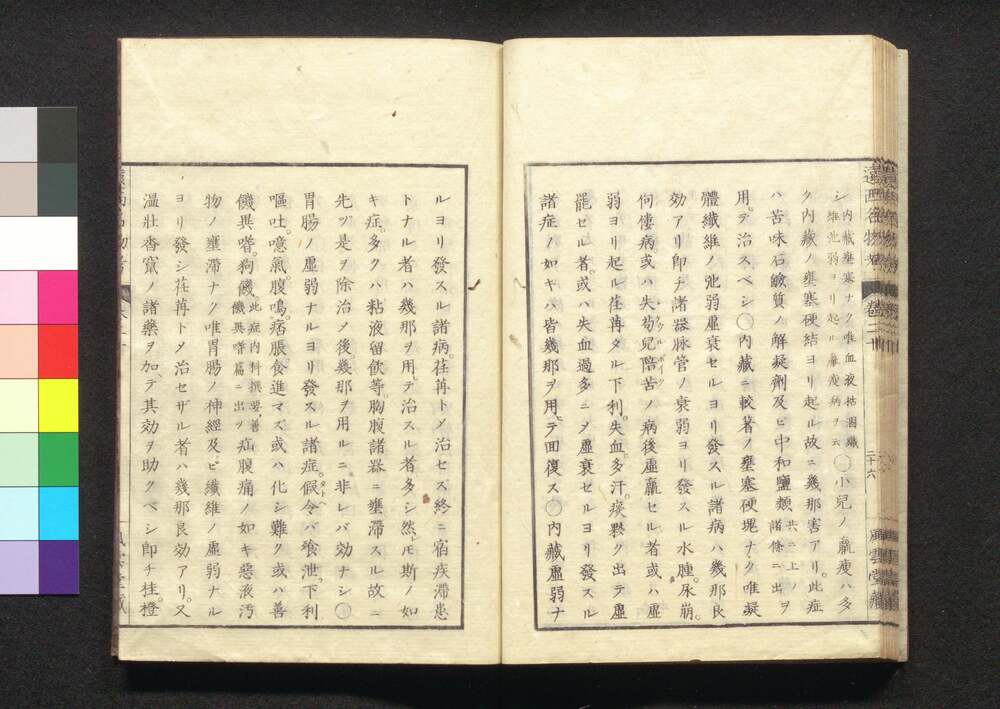 遠西名物考 巻二十 二十六 風雲堂藏
シ 内藏壅塞ナク唯血液枯涸纖維弛弱ヨリ起ル羸瘦病ヲ云 〇小兒ノ羸瘦ハ多
ク内藏ノ壅塞硬結ヨリ起ル故ニ幾那害アリ。此症
ハ苦味石鹸質ノ解凝劑及ビ中和鹽類 共ニ上ノ諸條ニ出ヅ ヲ
用テ治スベシ〇内藏ニ較著ノ壅塞硬塊ナク唯凝
體纖維ノ弛弱虛衰セルヨリ發スル諸病ハ幾那良
効アリ即チ諸器脉管ノ衰弱ヨリ發スル水腫。尿崩。
佝僂病或ハ失苟兒陪苦ノ病後虛羸セル者或ハ虛
弱ヨリ起ル荏苒タル下利。失血。多汗。痰夥ク出テ虛
罷セル者。或ハ失血過多ニメ虛衰セルヨリ發スル
諸症ノ如キハ皆幾那ヲ用テ回復ス〇内藏虛弱ナ
ルヨリ發スル諸病。荏苒トメ治セス終ニ宿疾滯患
トナル者ハ幾那ヲ用テ治スル者多シ然レモ斯ノ如
キ症。多クハ粘液留飲等。胸腹諸器ニ壅滯スル故ニ
先ヅ是ヲ除治メ後。幾那ヲ用ルニ非レバ効ナシ〇
胃腸ノ虛弱ナルヨリ發スル諸症。假令バ飧泄。下利
嘔吐。噫氣腹鳴。痞脹食進マズ或ハ化シ難ク或ハ善
饑異嗜。狗饑 此症内科撰要善饑異嗜篇ニ出ヅ 疝腹痛ノ如キ惡液汚
物ノ壅滯ナク唯胃腸ノ神經及ビ纖維ノ虛弱ナル
ヨリ發シ荏苒トメ治セザル者ハ幾那良効アリ。又
溫壯香竄ノ諸藥ヲ加テ其効ヲ助クベシ即チ桂。橙